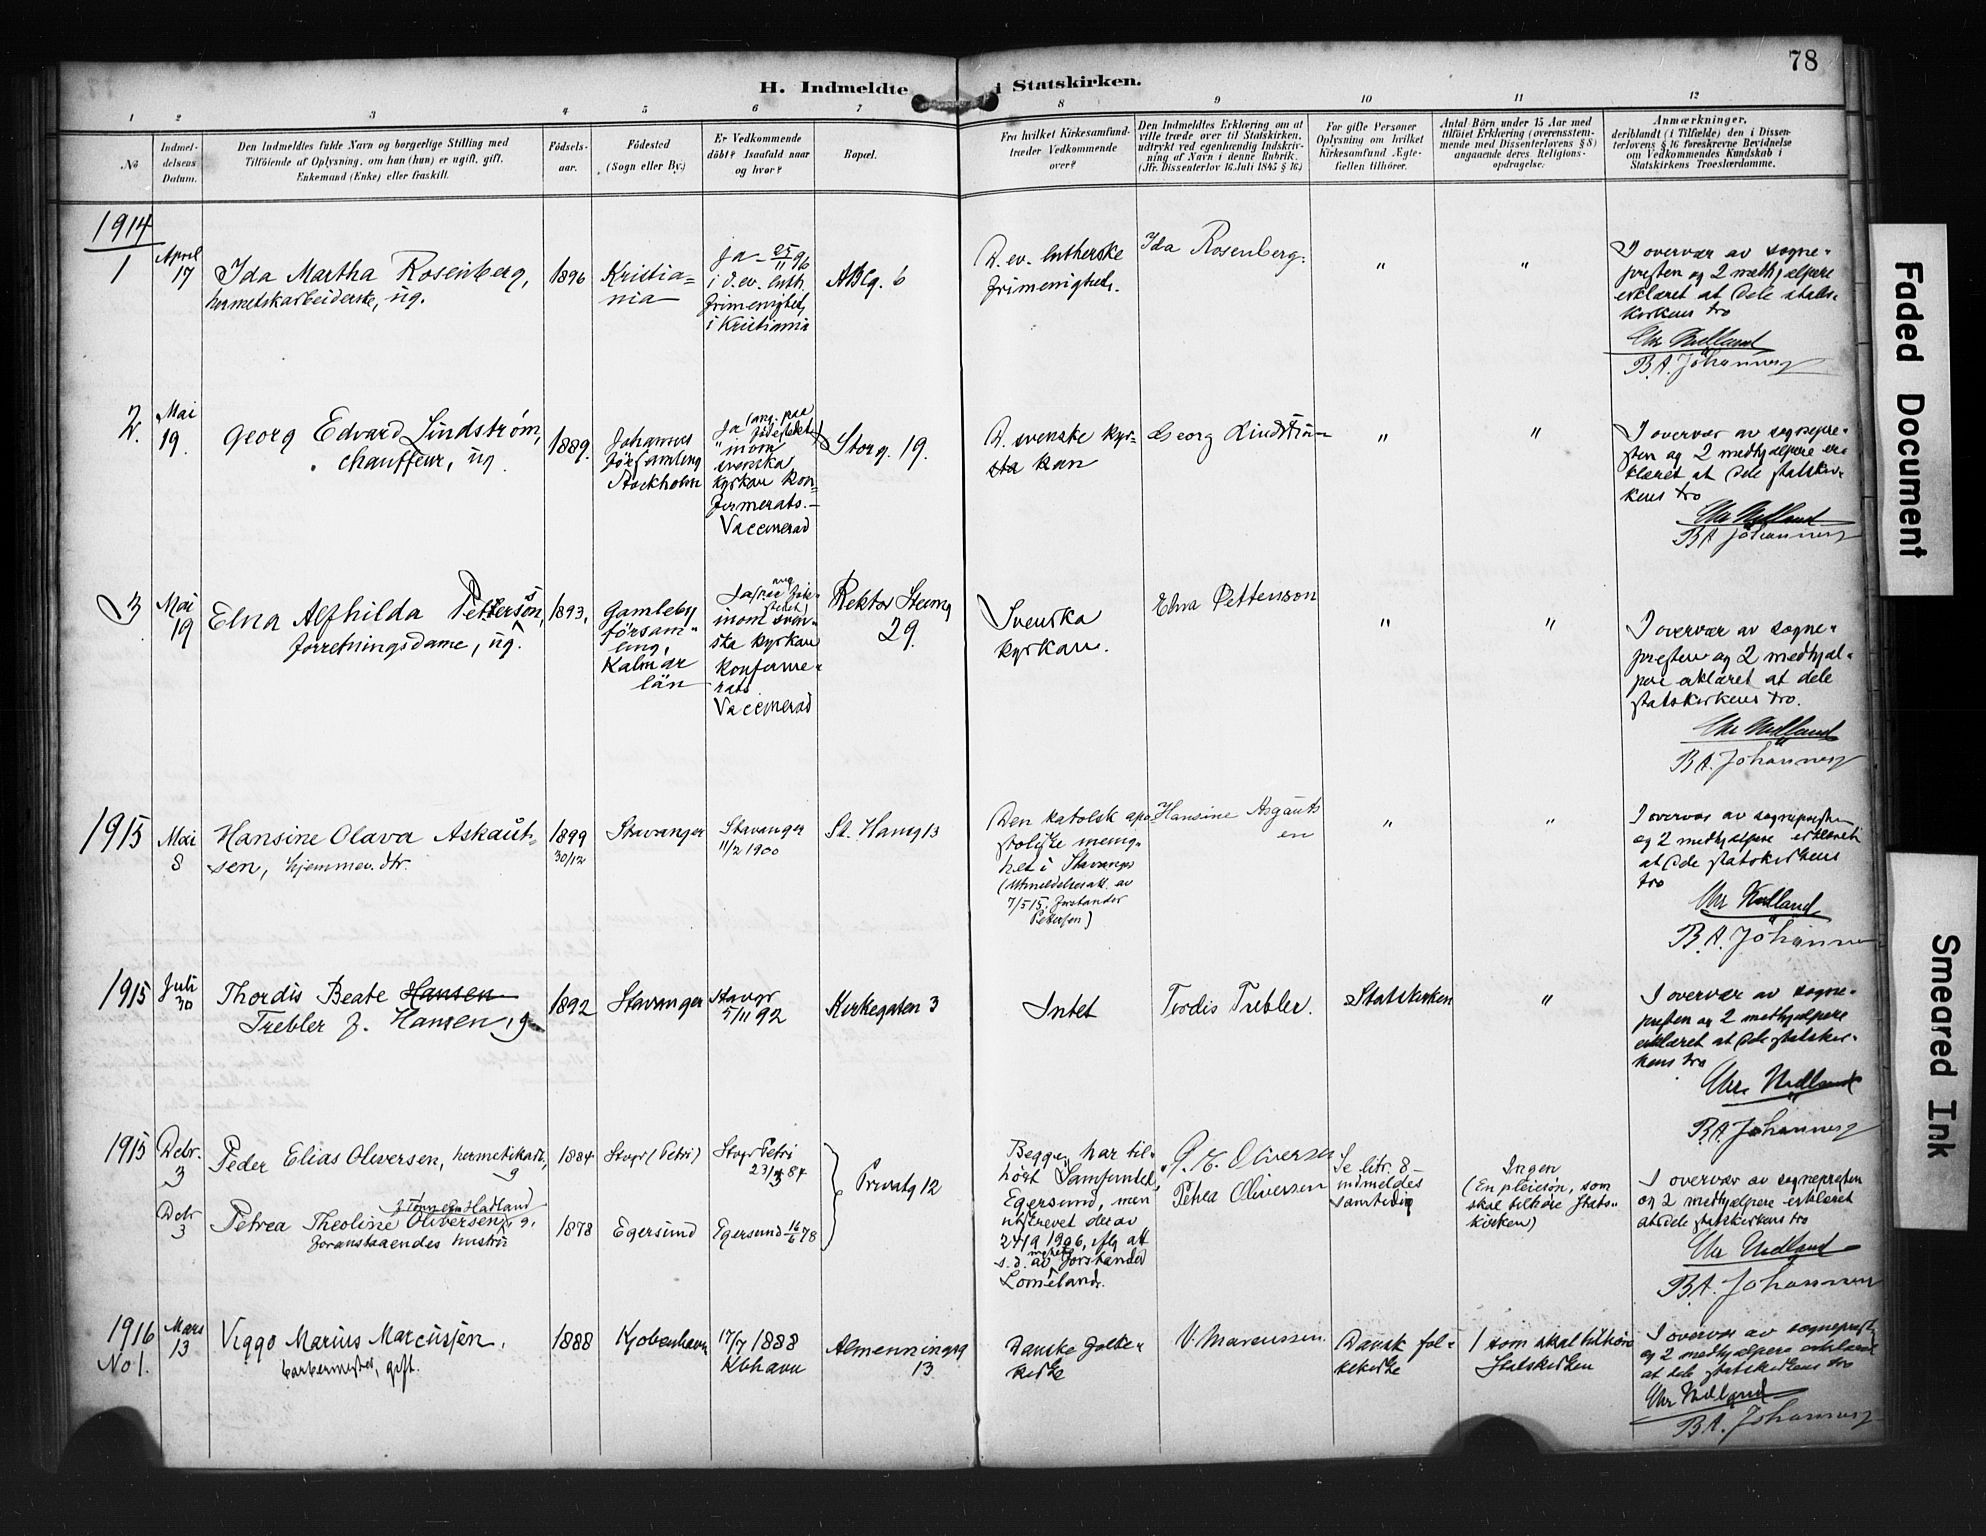 78
H. Indmeldte i Statskirken.
1 2 3 4 5 6 7 8 9 10 11 12
No
Indmel-
delsens
Datum.
Den Indmeldtes fulde Navn og borgerlige Stilling med
Tilföiende af Oplysning, om han (hun) er ugift, gift,
Enkemand (Enke) eller fraskilt.
Födsels-
aar.
Födested
(Sogn eller By.)
Er Vedkommende
döbt? Isaafald naar
og hvor?
Bopæl.
Fra hvilket Kirkesamfund
træder Vedkommende
over?
Den Indmeldtes Erklæring om at
ville træde over til Statskirken,
udtrykt ved egenhændig Indskriv-
ning af Navn i denne Rubrik.
(Jfr. Dissenterlov 16 Juli 1845 § 16.)
For gifte Personer
Oplysning om hvilket
Kirkesamfund Ægte-
fællen tilhörer.
Antal Börn under 15 Aar med
tilföiet Erklæring (overensstem-
mende med Dissenterlovens § 8)
angaaende deres Religions-
opdragelse.
Anmærkninger,
deriblandt (i Tilfælde) den i Dissen-
terlovens § 16 foreskrevne Bevidnelse
om Vedkommendes Kundskab i
Statskirkens Troeslærdomme.
1914
1
April
17
Ida Martha Rosenberg,
hermetikarbeiderske, ug.
1896
Kristia=
nia
Ja - 25/11 96
i d. ev. luth.
frimenighed,
i Kristiania
6
D. ev. lutherske
frimenighed.
Ida Rosenberg.
"
"
I overvær av sogne-
presten og 2 medhjælpere
erklæret at dele stats-
kirkens tro
Chr Nedland
B.A. Johannesg
2.
Mai
19.
Georg Edvard Lindstrøm,
chauffeur, ug
1889.
Johannes
församling
Stockholm
Ja (ang. paa
inom
svenska
kyrkan kon-
fermerats. -
Vaccinerad
Storg. 19.
D. svenske kyr-
sta kan
Georg Lindström
"
"
I overvær av sognepre-
sten og 2 medhjælpere er-
klæret at dele statskir-
kens tro
Chr Nedland
B.A. Johannesg
3
Mai
19
Elna Alfhilda Petterson,
forretningsdame, ug.
1893.
Gamleby
försam-
ling,
Kalmar
län
inom sven-
ska kyrkan
konferme-
rats
Vaccinerad
Rektor Steensg
29.
Svenska
kyrkan.
Elna Pettersson
"
"
I overvær av sogne-
presten og 2 medhjæl-
pere erklæret at dele
statskirkens tro.
Chr Nedland
B.A. Johannesg
1915
Mai
8
Hansine Olava Askaut-
sen, hjemmev. dtr.
1899
30/12
Stavanger
Stavanger
11/2 1900
St. Hansg 13
Den katolsk apo
stoliske menig-
het i Stavanger
(Utmeldelsesatt. av
7/5 15. forstander
Petersen)
Hansine Asgauts
en
"
"
I overvær av sognepresten
og 2 medhjælpere erklæret
at dele statskirkens
tro
Chr Nedland
B.A. Johannes
1915
Juli
30
Thordis Beate Hansen
Trebler f. Hansen, g
1892
Stavanger
Stavgr
5/11 92
Kirkegaten 3
Intet
Tordis Trebler.
Statskirken
"
I overvær av sogne-
presten og 2 medhjælpere
erklæret at dele statskir-
kens tro
Chr. Nedland
B.A. Johannesg
1915
Debr.
3
Peder Elias Oliversen, hermetikarb.,
g
1884
Stvgr (Petri)
Stvgr Petri
23/3 84
Privatg 12
Begge har til-
hørt Samfundet,
Egersund, men
utskrevet der av
24/9 1906, iflg att
s.d. av forstander
Lomeland.
P. E. Oliversen
Petrea Oliversen
Se litr. 8 -
indmeldes
samtidig
Ingen
(En pleiesøn, som
skal tilhöre Stats-
kirken)
I overvær av sognepresten
og 2 medhjælpere erklæret
at dele statskirkens tro
Chr Nedland
B.A. Johannesen
Debr
3
f. Tønnesen Hadland
Petrea Theoline Oliversen, g.
foranstaaendes hustru
1878
Egersund
Egersund 16/6 78
1916
No 1.
Mars
13
Viggo Marius Marcussen,
barbermester, gift.
1888
Kjøbenhavn
17/7 1888
Kbhavn
Almenningsg
13
Danske folke-
kirke
V. Marcussen.
Dansk fol-
kekirke
1 som skal tilhöre
Statskirken
I overvær av sognepresten
og 2 medhjælpere erklæret
at dele statskirkens tro
Chr Nedland
B.A. Johannesg
Faded Document
Smeared Ink